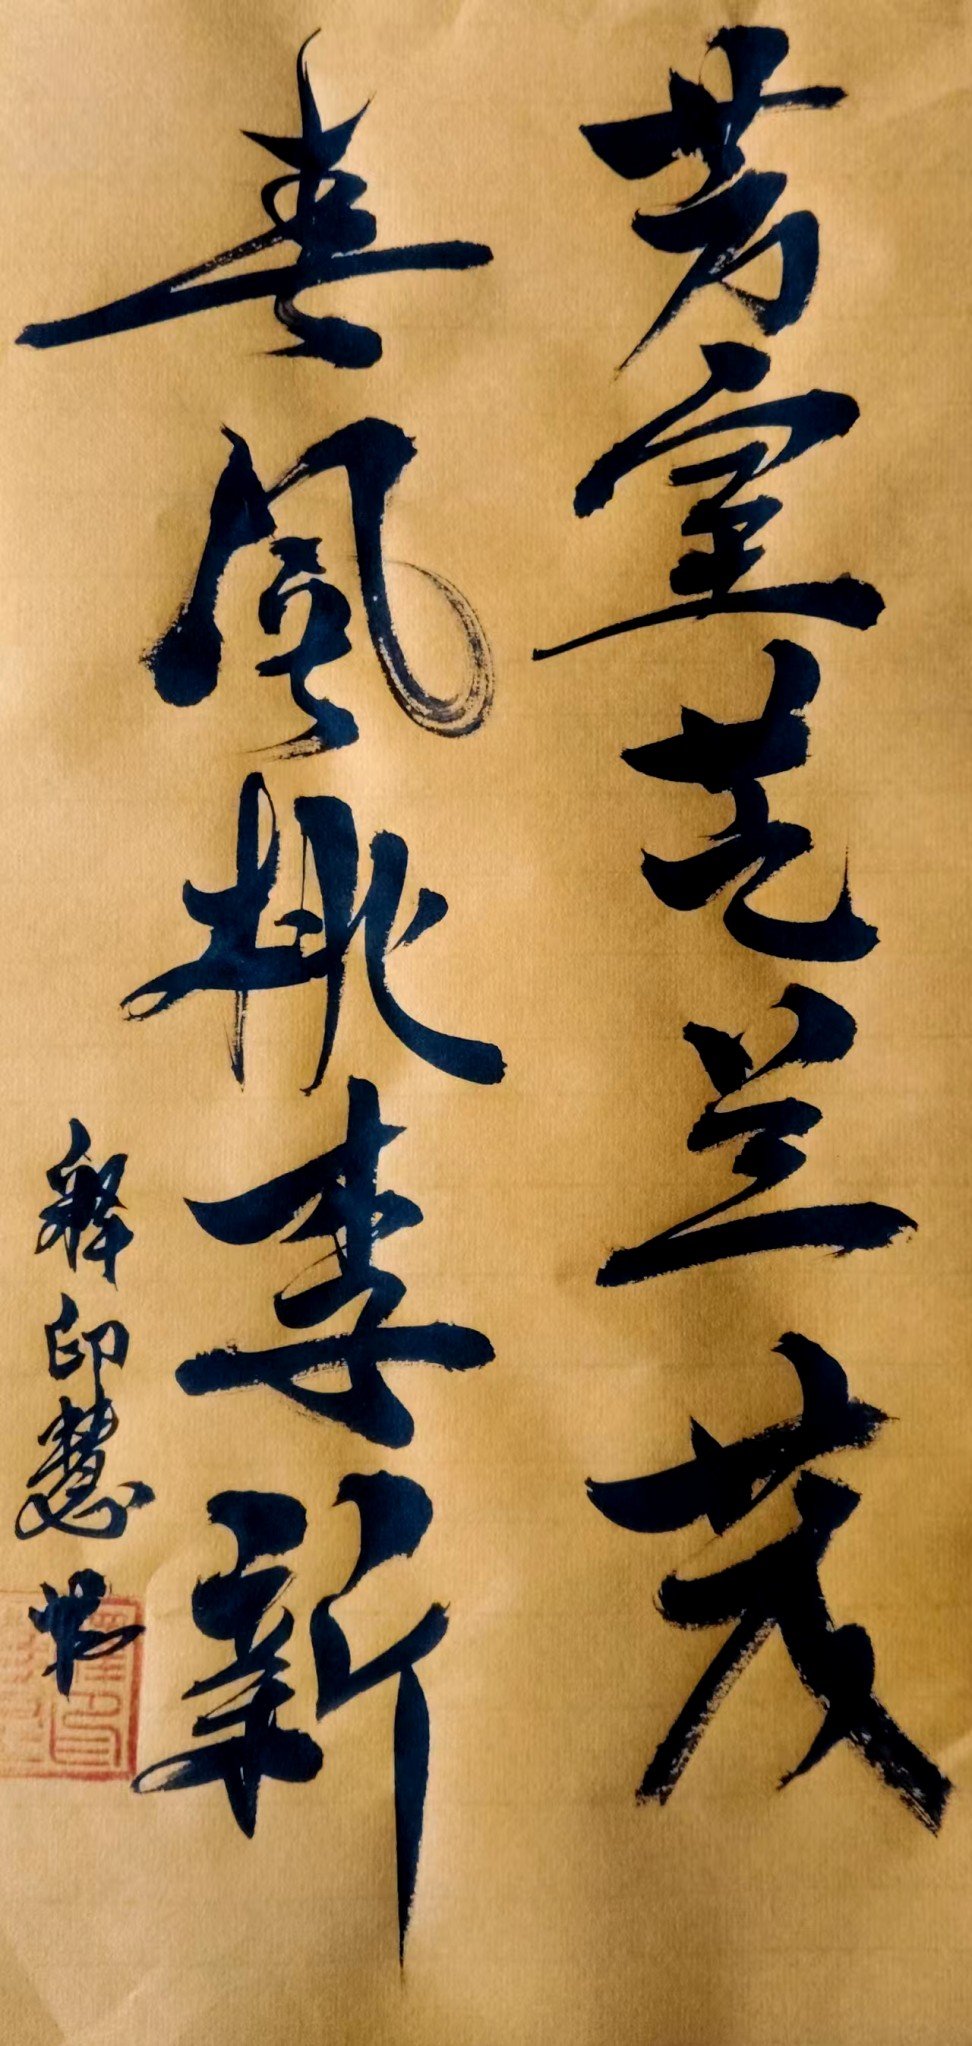 芳室芝兰茂
春風桃李新
释印慧书